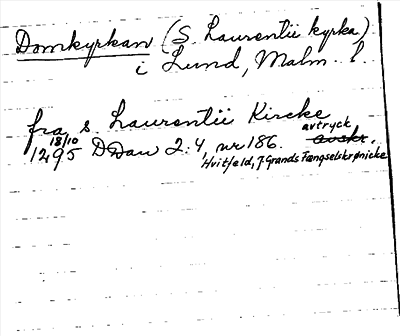 Domkyrkan (S. Laurentii kyrka)
i Lund, Malm. l.
fra s. Laurentii Kircke
1295 18/10 DDan 2:4, nr 186. avskr. avtryck
Hvitfeld, J. Grands Fængselskrønicke